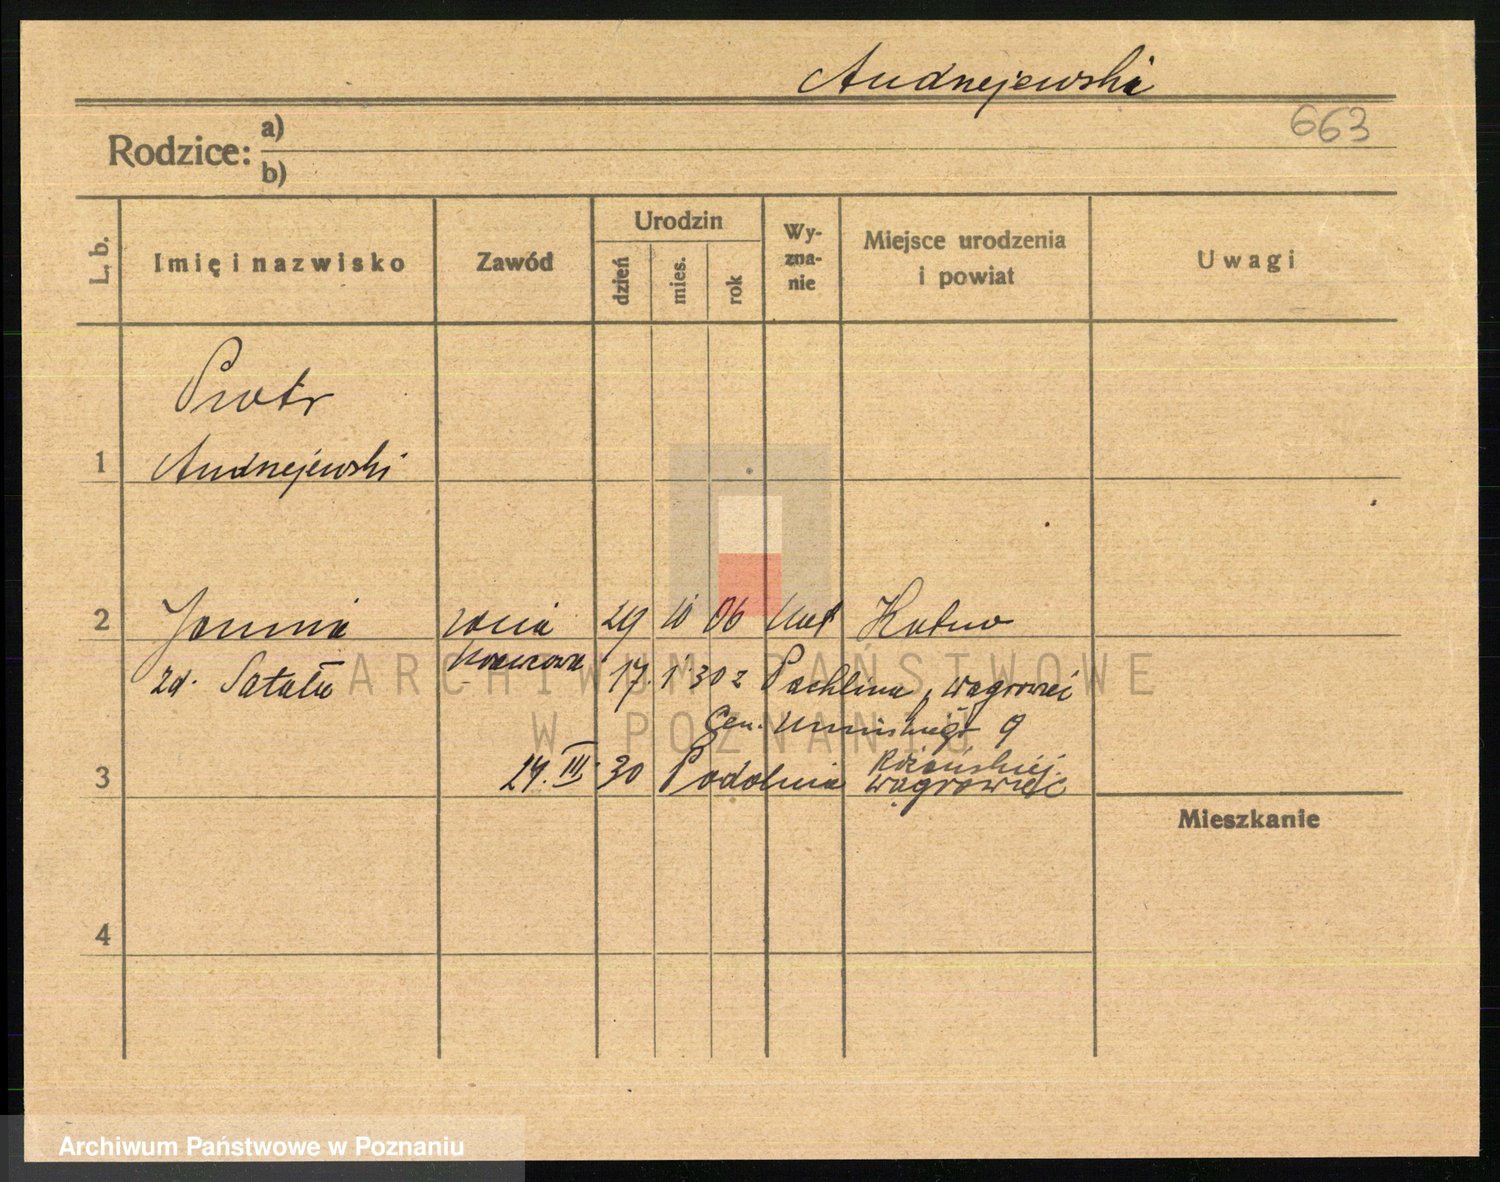 Andrzejewski
663
Rodzice: a)
b)
L. b.
Imię i nazwisko
Zawód
Urodzin
dzień
mies.
rok
Wy-
zna-
nie
Miejsce urodzenia
i powiat
Uwagi
Piotr
1 Andrzejewski
2 Janina 29 10 06 Kat Kutno
zd. 17. 1. 30 z Pachlina, Wągrowiec
Gen. Umińskiego 9
3 24. III. 30 Podolina Wągrowiec
Mieszkanie
4
ARCHIWUM PAŃSTWOWE
W POZNANIU
Archiwum Państwowe w Poznaniu